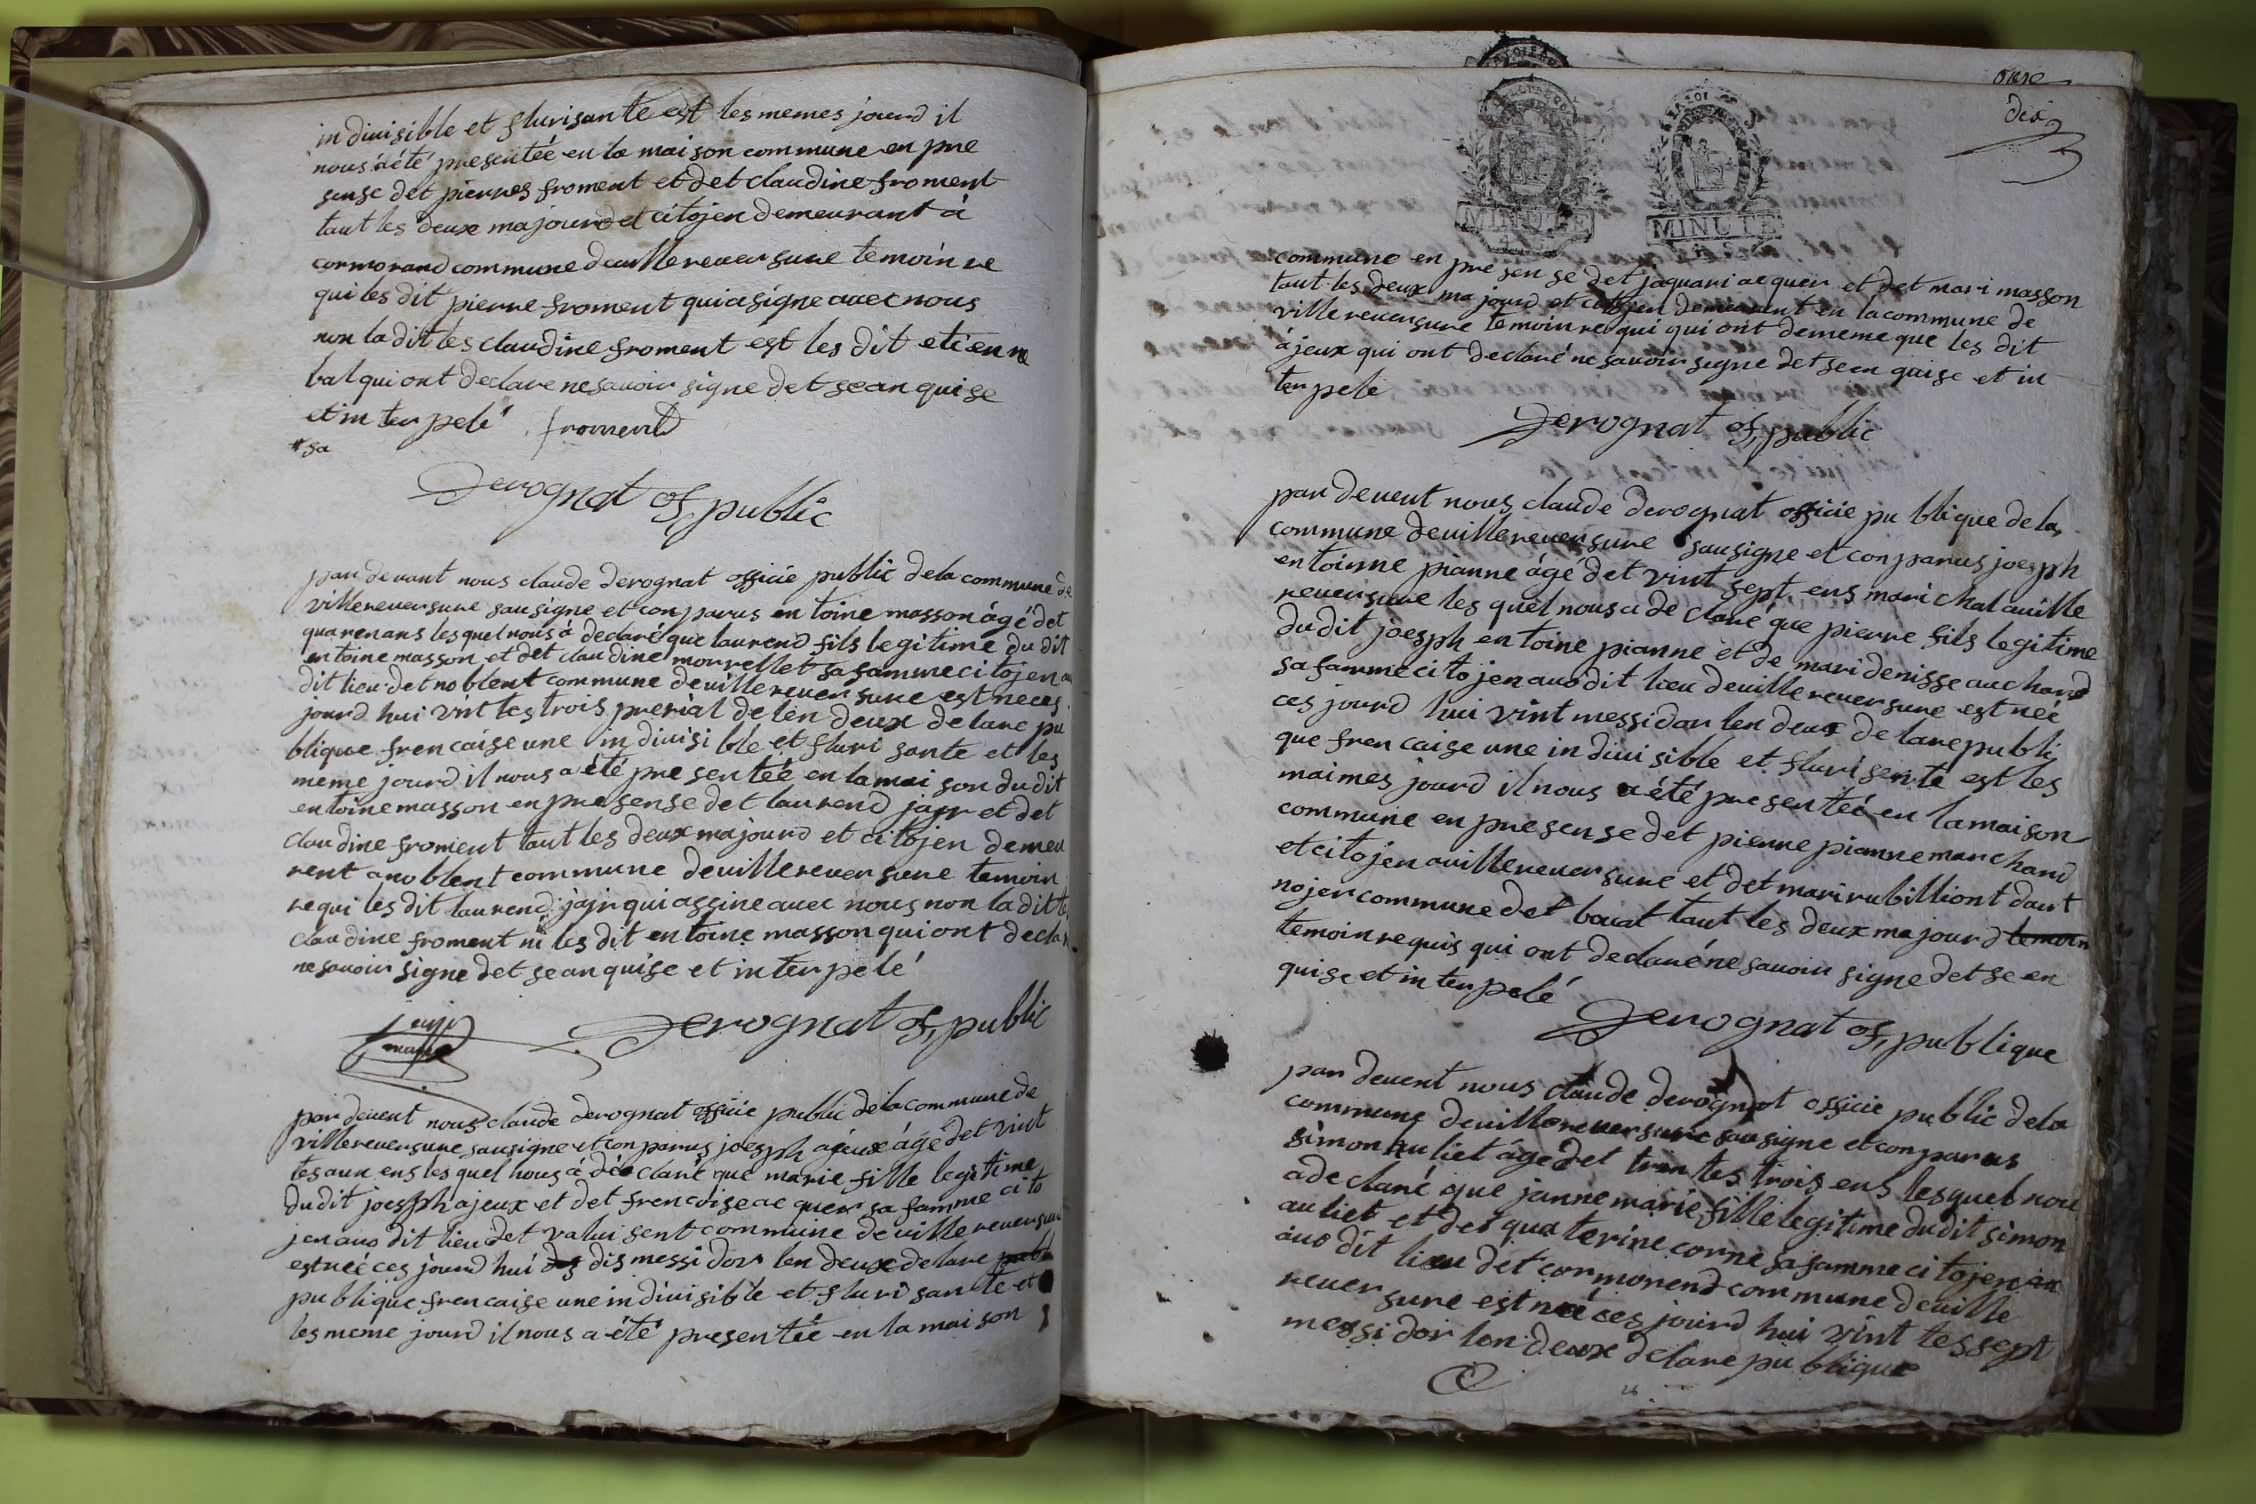 in diuisible et flurisante est les memes jourd il
nous a été presentéé en la maison commune en pre
sense det pierres froment et det claudine froment
taut les deux majourd et citojen demeurant à
cormorand commune deuillereuersure temoin re
qui les dit pierre froment qui a signe auec nous
non la dit les claudine froment est les dit etienne
bal qui ont declare ne sauoir signe det sean quise
et in ter pelé froment
*sa
Derognat of, public
par deuant nous claude derognat officie public dela commune de
villereuersure sausigne et conparus en toine masson âgé det
quarenans les quel nous à declaré que laurend fils legitime du dit
entoine masson et det claudine mourellet sa famme citojen au
dit lieu det noblent commune deuillereuersure est neces
jourd hui vint les trois prerial de len deux de lare pu
blique frencaise une in diuisi ble et fluri sante et les
meme jourd il nous a été pre sentéé en la mai son du dit
entoine masson en presense det laurend jajr et det
claudine froment taut les deux majourd et citojen demeu
rent a noblent commune deuillereuersure temoin
requi les dit laurend jajr qui assine auec nous non la dit te
claudine froment ni les dit entoine masson qui ont declar
ne sauoir signe det sean quise et in ter pelé
Derognat of, public
par deuent nous claude derognat officie public dela commune de
villereuersure sausigne et conparus joesph ajeux âgé det vint
tes aun ens les quel nous à dé claré que marie fille legitime
du dit joesph ajeux et det frencoise ac quer sa famme cito
jen auo dit lieu det valui sent commune deuillereuersur
est néé ces jourd hui dis messidor len deux de lare
publique frencaise une in diuisible et fluri sante et
les meme jourd il nous a été presentéé en la maison
onse
dix
MINUTE
MINUTE
commune en pre sen se det jaquari ac quer et det mari masson
taut les deux ma jourd et citojen demeurent en la commune de
villereuersure temoin re qui qui ont dememe que les dit
âjeux qui ont declaré ne sauoir signe det seen quise et in
ter pele
Derognat of, public
par deuent nous claude derognat officie pu blique de la
commune deuillereuersure sausigne et conparus joesph
entoinne pianne âgé det vint sept ens mari chal auille
reuersure les quel nous a de claré que pierre fils legitime
du dit joesph en toine pianne et de mari denisse auchard
sa famme cito jen auo dit lieu deuillereuersure est néé
ces jourd hui vint messidor len deux de lare publi
que frencaise une in diuisible et flurisente est les
maimes jourd il nous a été pre sentéé en la maison
commune en presense det pierre pianne marchand
et citojen auillereuersure et det mari rubilliont daut
nojer commune det bouat taut les deux majourd temoin
temoin requis qui ont declaréne sauoir signe det se en
quise et in ter pelé
Derognat of, publique
par deuent nous claude derognat officie public de la
commune deuillereuersure sausigne et conparus
simon auliet âgé det tren tes trois ens lesquel nou
a de claré que janne marie fille legitime du dit simon
auliet et det qua terine corne sa famme citojen
auo dit lieu det cormorend commune deuille
reuersure est néé ces jourd hui vint tes sept
messi dor len deux delare pu blique